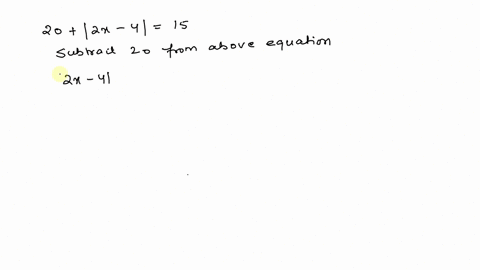 20 + |2x - 4| = 15
Subtract 20 from above equation
2x - 4|